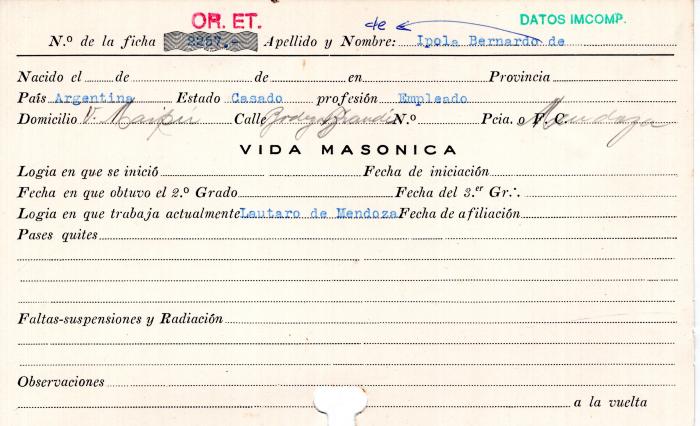 OR. ET.
de
DATOS IMCOMP.
N.º de la ficha 2257.- Apellido y Nombre: Ipola Bernardo de
Nacido el de de en Provincia
País Argentina Estado Casado profesión Empleado
Domicilio V. Maipu Calle Bodega N.º Pcia. o F. C. Mendoza
VIDA MASONICA
Logia en que se inició Fecha de iniciación
Fecha en que obtuvo el 2.º Grado Fecha del 3.er Gr∴
Logia en que trabaja actualmente Lautaro de Mendoza Fecha de afiliación
Pases quites
Faltas-suspensiones y Radiación
Observaciones
a la vuelta